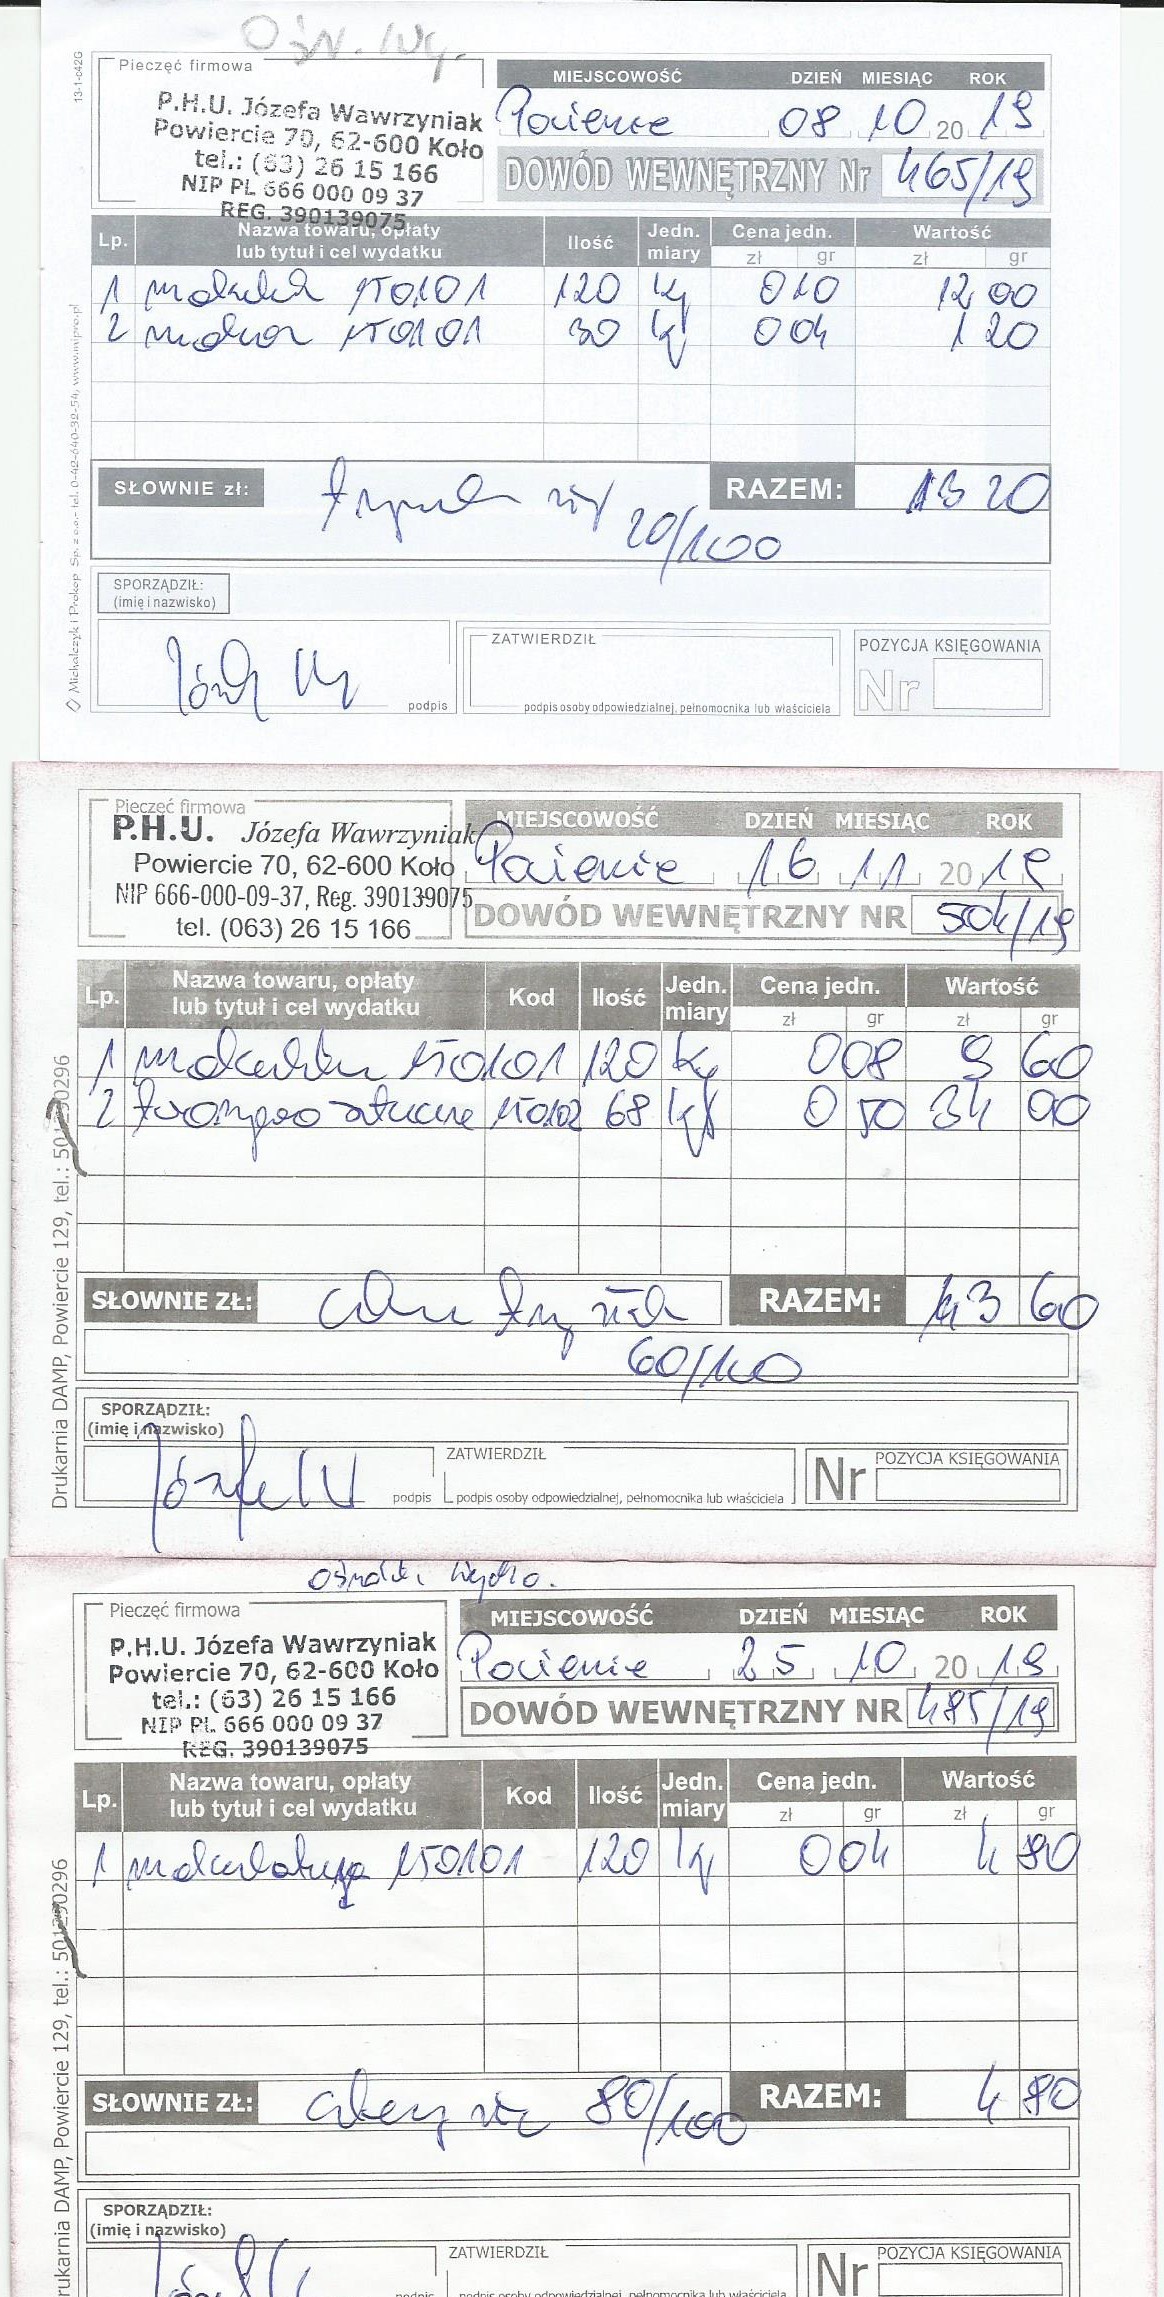 Ośr. Wy.
13-1-c42G
Pieczęć firmowa
P.H.U. Józefa Wawrzyniak
Powiercie 70, 62-600 Koło
tel.: (63) 26 15 166
NIP PL 666 000 09 37
REG. 390139075
MIEJSCOWOŚĆ DZIEŃ MIESIĄC ROK
08 10 20 19
DOWÓD WEWNĘTRZNY Nr 465/19
Lp. Nazwa towaru, opłaty lub tytuł i cel wydatku Ilość Jedn. miary Cena jedn. zł gr Wartość zł gr
1 150101 120 kg 0 10 12 00
2 150101 30 kg 0 04 1 20
SŁOWNIE zł: 20/100
RAZEM: 13 20
SPORZĄDZIŁ:
(imię i nazwisko)
podpis
ZATWIERDZIŁ
podpis osoby odpowiedzialnej, pełnomocnika lub właściciela
POZYCJA KSIĘGOWANIA
Nr
Michalczyk i Prokop Sp. z o.o. tel. 0-42-640-32-54, www.mipro.pl
Pieczęć firmowa
P.H.U. Józefa Wawrzyniak
Powiercie 70, 62-600 Koło
NIP 666-000-09-37, Reg. 390139075
tel. (063) 26 15 166
MIEJSCOWOŚĆ DZIEŃ MIESIĄC ROK
16 11 20 19
DOWÓD WEWNĘTRZNY NR 504/19
Lp. Nazwa towaru, opłaty lub tytuł i cel wydatku Kod Ilość Jedn. miary Cena jedn. zł gr Wartość zł gr
1 150101 120 kg 0 08 9 60
2 sztuczne 150102 68 kg 0 50 34 00
SŁOWNIE ZŁ:
RAZEM: 43 60
60/100
SPORZĄDZIŁ:
(imię i nazwisko)
Józefa W
podpis
ZATWIERDZIŁ
podpis osoby odpowiedzialnej, pełnomocnika lub właściciela
Nr
POZYCJA KSIĘGOWANIA
Drukarnia DAMP, Powiercie 129, tel.: 501290296
Pieczęć firmowa
P.H.U. Józefa Wawrzyniak
Powiercie 70, 62-600 Koło
tel.: (63) 26 15 166
NIP PL 666 000 09 37
REG. 390139075
MIEJSCOWOŚĆ DZIEŃ MIESIĄC ROK
25 10 20 19
DOWÓD WEWNĘTRZNY NR 485/19
Lp. Nazwa towaru, opłaty lub tytuł i cel wydatku Kod Ilość Jedn. miary Cena jedn. zł gr Wartość zł gr
1 makulatura 150101 120 kg 0 04 4 80
SŁOWNIE ZŁ: cztery 80/100
RAZEM: 4 80
SPORZĄDZIŁ:
(imię i nazwisko)
podpis
ZATWIERDZIŁ
podpis osoby odpowiedzialnej, pełnomocnika lub właściciela
Nr
POZYCJA KSIĘGOWANIA
rukarnia DAMP, Powiercie 129, tel.: 501290296